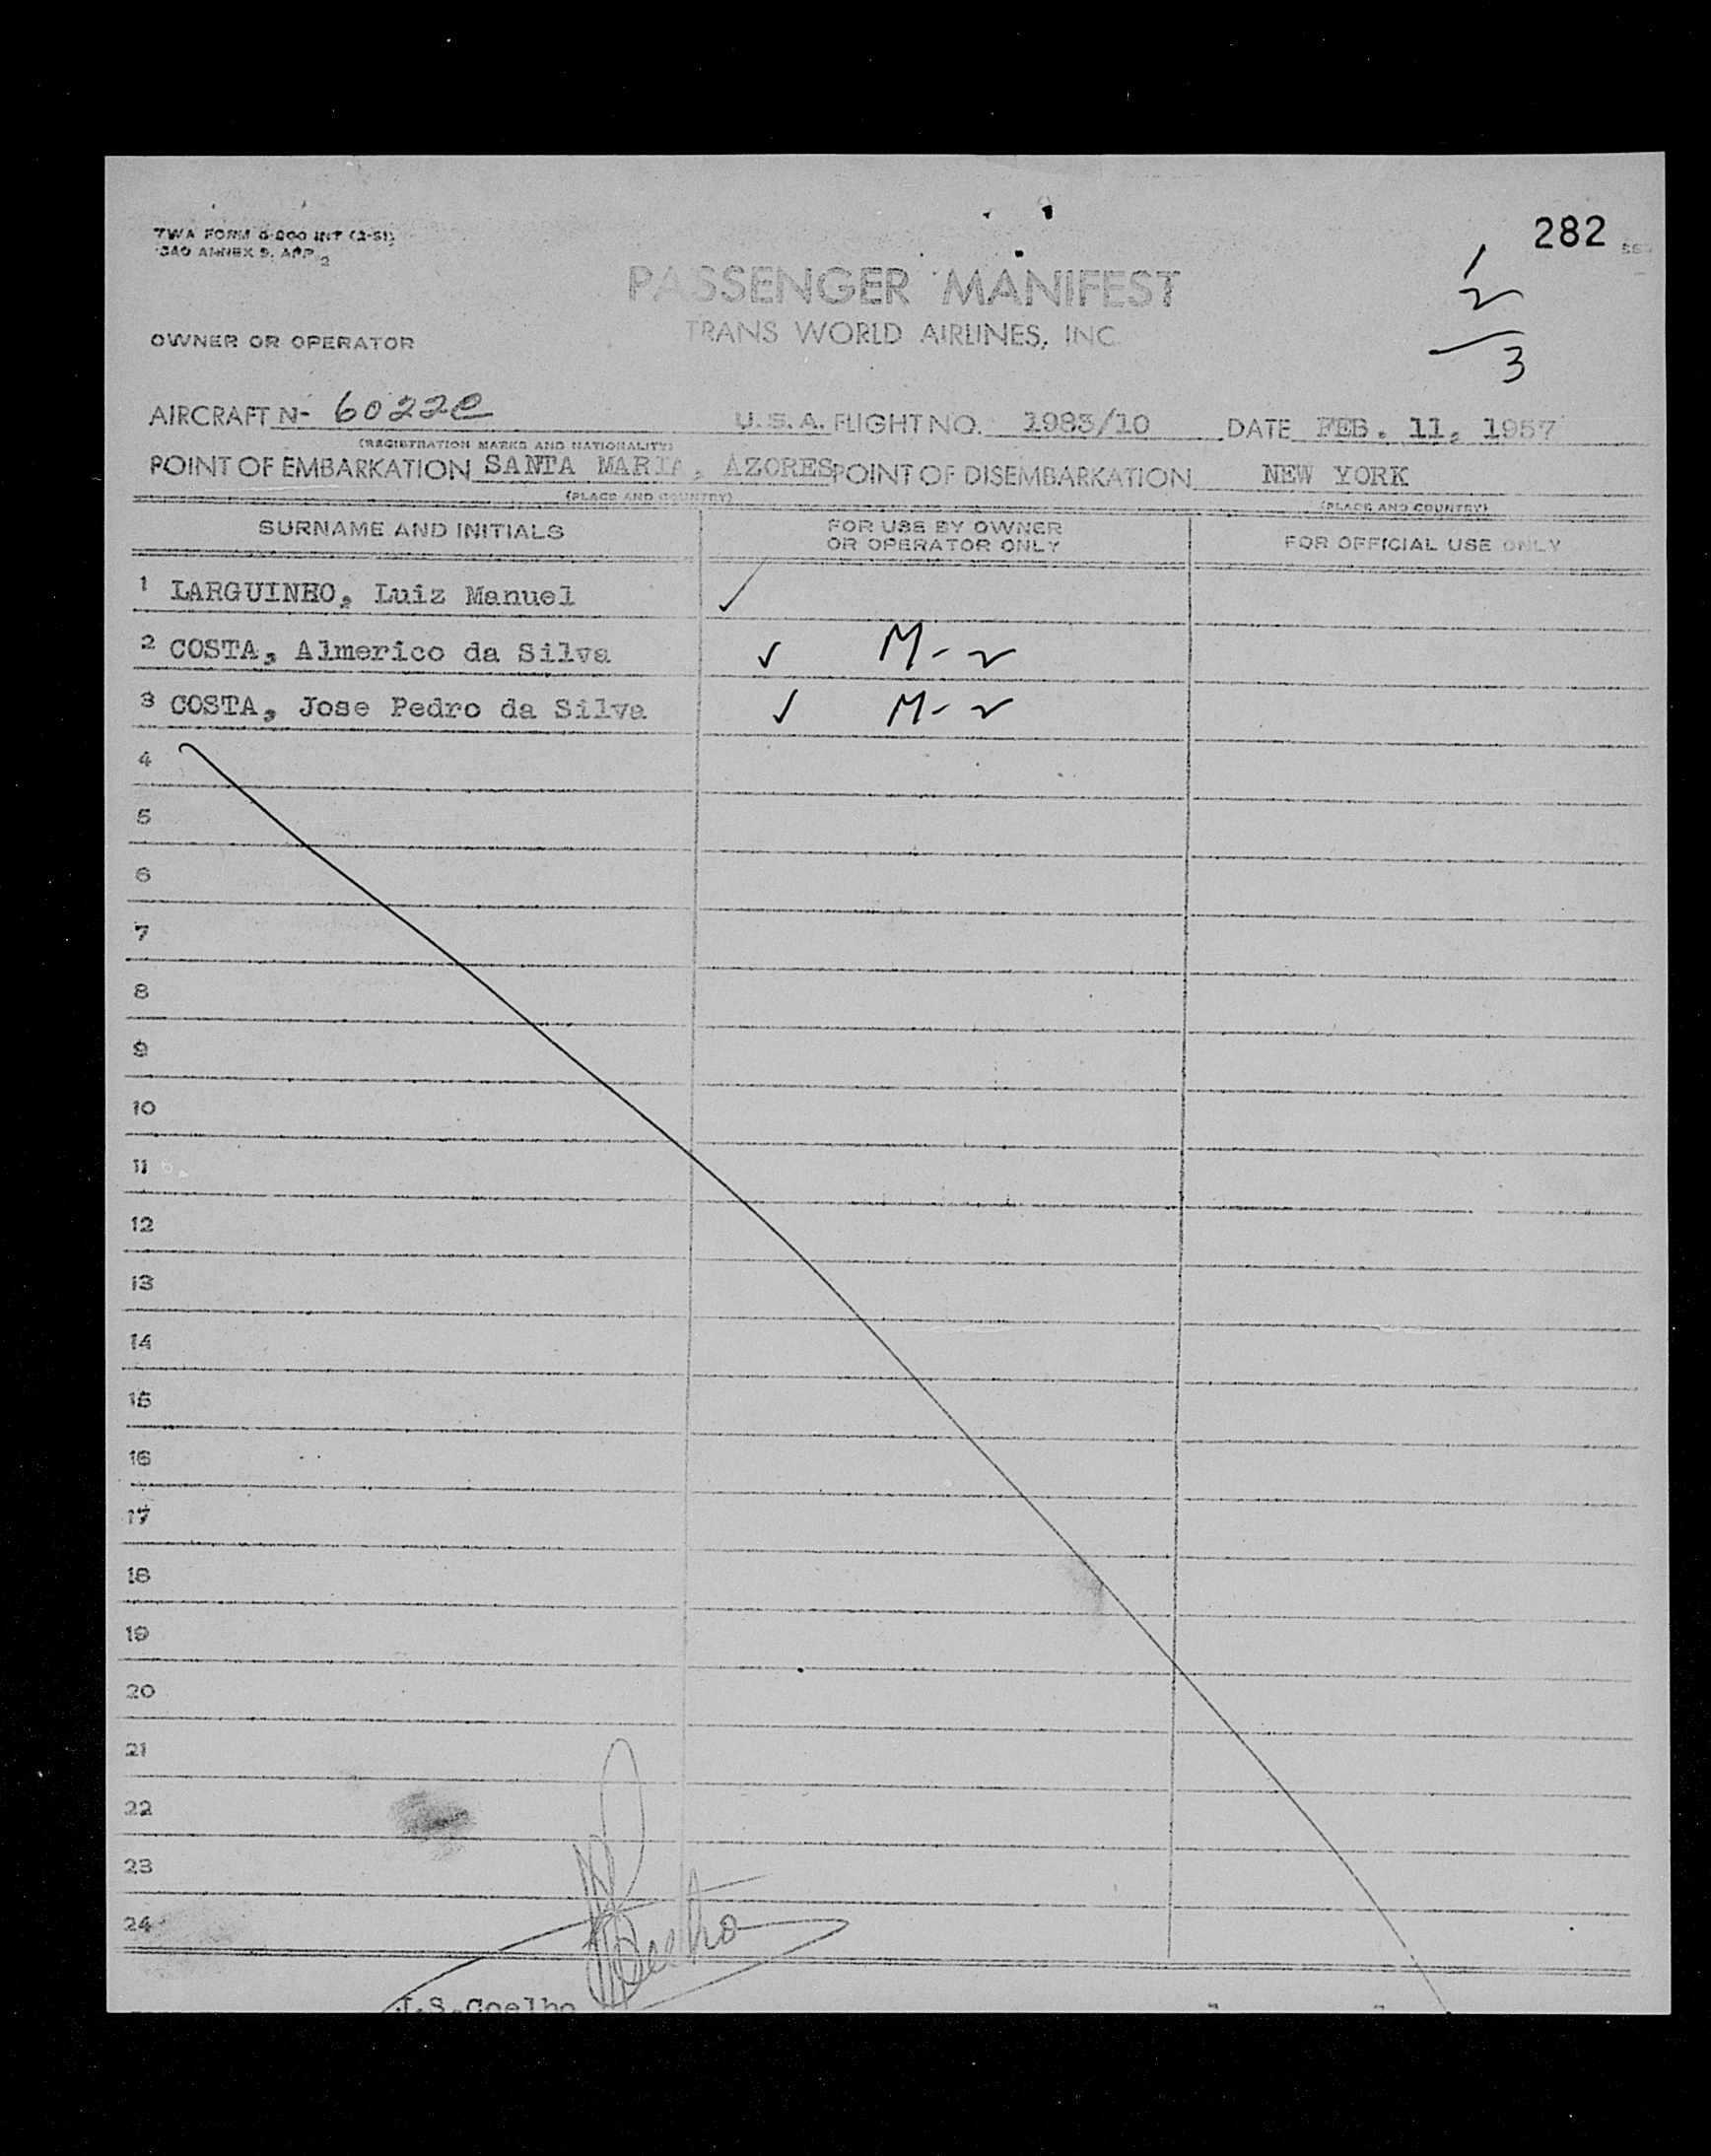 TWA FORM INT (2-51)
ICAO ANNEX 9, APP 2
282
PASSENGER MANIFEST
TRANS WORLD AIRLINES, INC.
1
2
3
OWNER OR OPERATOR
AIRCRAFT N- 6022C
U.S.A. FLIGHT NO. 1983/10 DATE FEB. 11, 1957
(REGISTRATION MARKS AND NATIONALITY)
POINT OF EMBARKATION SANTA MARIA, AZORES POINT OF DISEMBARKATION NEW YORK
(PLACE AND COUNTRY) (PLACE AND COUNTRY)
SURNAME AND INITIALS FOR USE BY OWNER OR OPERATOR ONLY FOR OFFICIAL USE ONLY
1 LARGUINHO, Luiz Manuel ✓
2 COSTA, Almerico da Silva ✓ M-2
3 COSTA, Jose Pedro da Silva ✓ M-2
4
5
6
7
8
9
10
11
12
13
14
15
16
17
18
19
20
21
22
23
24
J.S.Coelho